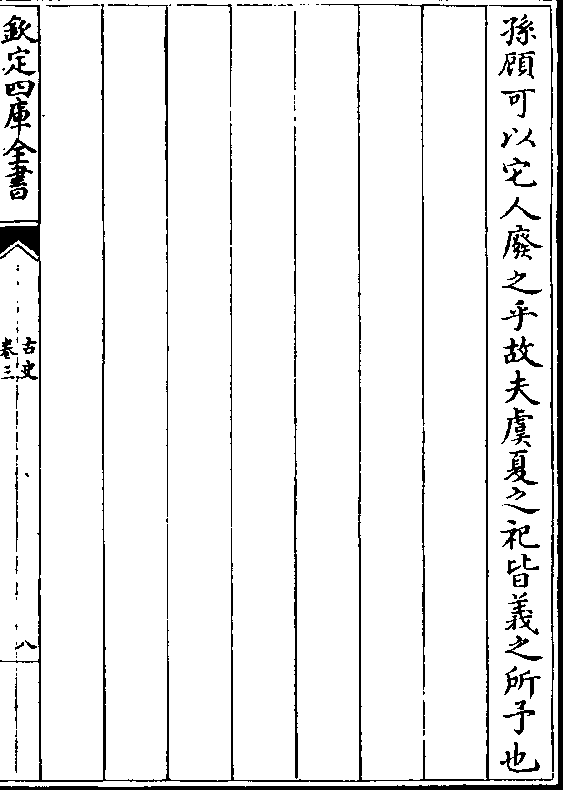 孫顧可以宅人廢之乎故夫虞夏之祀皆義之所予也
欽定四庫全書
古史
卷三
八